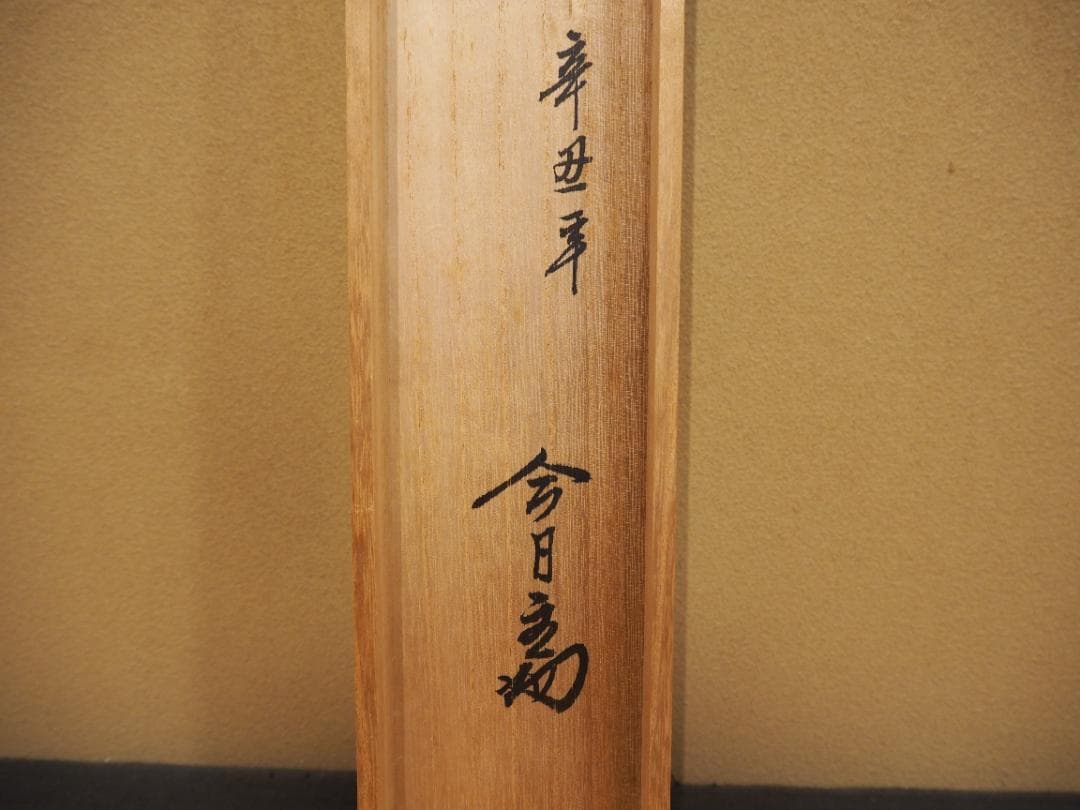 辛丑年
今日主